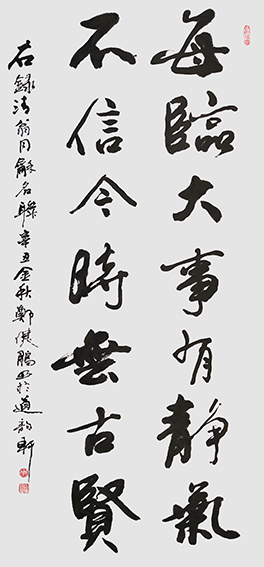 每臨大事有靜氣
不信今時無古賢
右録清翁同龢名聯辛丑金秋鄭俊鵬書於適韵軒